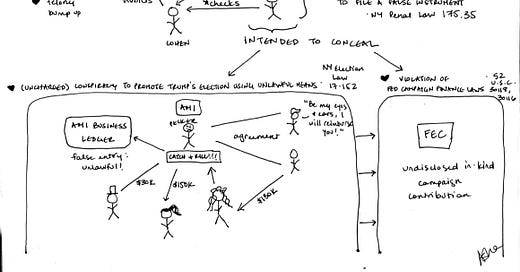 felony
bump up
COHEN
*checks
TO FILE A FALSE INSTRUMENT
• NY Penal Law 175.35
INTENDED TO CONCEAL
(UNCHARGED) CONSPIRACY TO PROMOTE TRUMP'S ELECTION USING UNLAWFUL MEANS
NY Election
Law
17-152
VIOLATION OF
FED CAMPAIGN FINANCE LAWS
• 52
U.S.C.
30118,
30116
AMI
PECKER
AMI BUSINESS
LEDGER
false entry:
unlawful!
CATCH + KILL!!!
agreement
"Be my eyes
+ ears, I
will reimburse
you!"
$30K
$150K
$130K
FEC
undisclosed in-kind
campaign
contribution